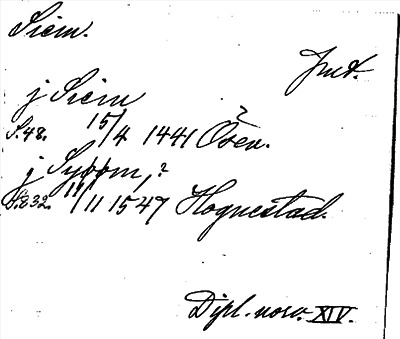 Siem.
Jmt.
j Siem
S.48. 15/4 1441 Ösen. ?
j Syoom, ?
S.832. 11/11 1547 Hognestad.
Dipl. norv. XIV.